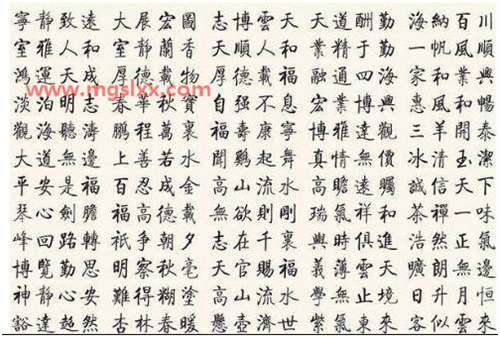 寧靜致遠 大展宏圖 志博雲天 天道酬勤 海納百川
室雅人和 室靜蘭香 天順人和 業精于勤 一帆風順
鴻運天成 厚德載物 厚德載福 融通四海 家和業興
www.mgslxx.com
淡泊明志 春華秋實 自强不息 宏業博興 惠風和暢
觀海聽濤 鵬程萬裏 福壽康寧 博雅達觀 三羊開泰
大道無邊 上善若水 聞鷄起舞 真情無價 冰清玉潔
平安是福 百忍成金 高山流水 高瞻遠矚 誠信天下
琴心劍膽 福高德載 無欲則剛 瑞氣祥和 茶禪一味
峰回路轉 祇爭朝夕 志在千裏 與時俱進 浩然正氣
博覽勤思 明察秋毫 天官賜福 義薄雲天 曠朗無邊
神靜心安 難得糊塗 福山福水 學無止境 日升月恒
豁達超然 杏林春暖 懸壺濟世 紫氣東來 客似雲來